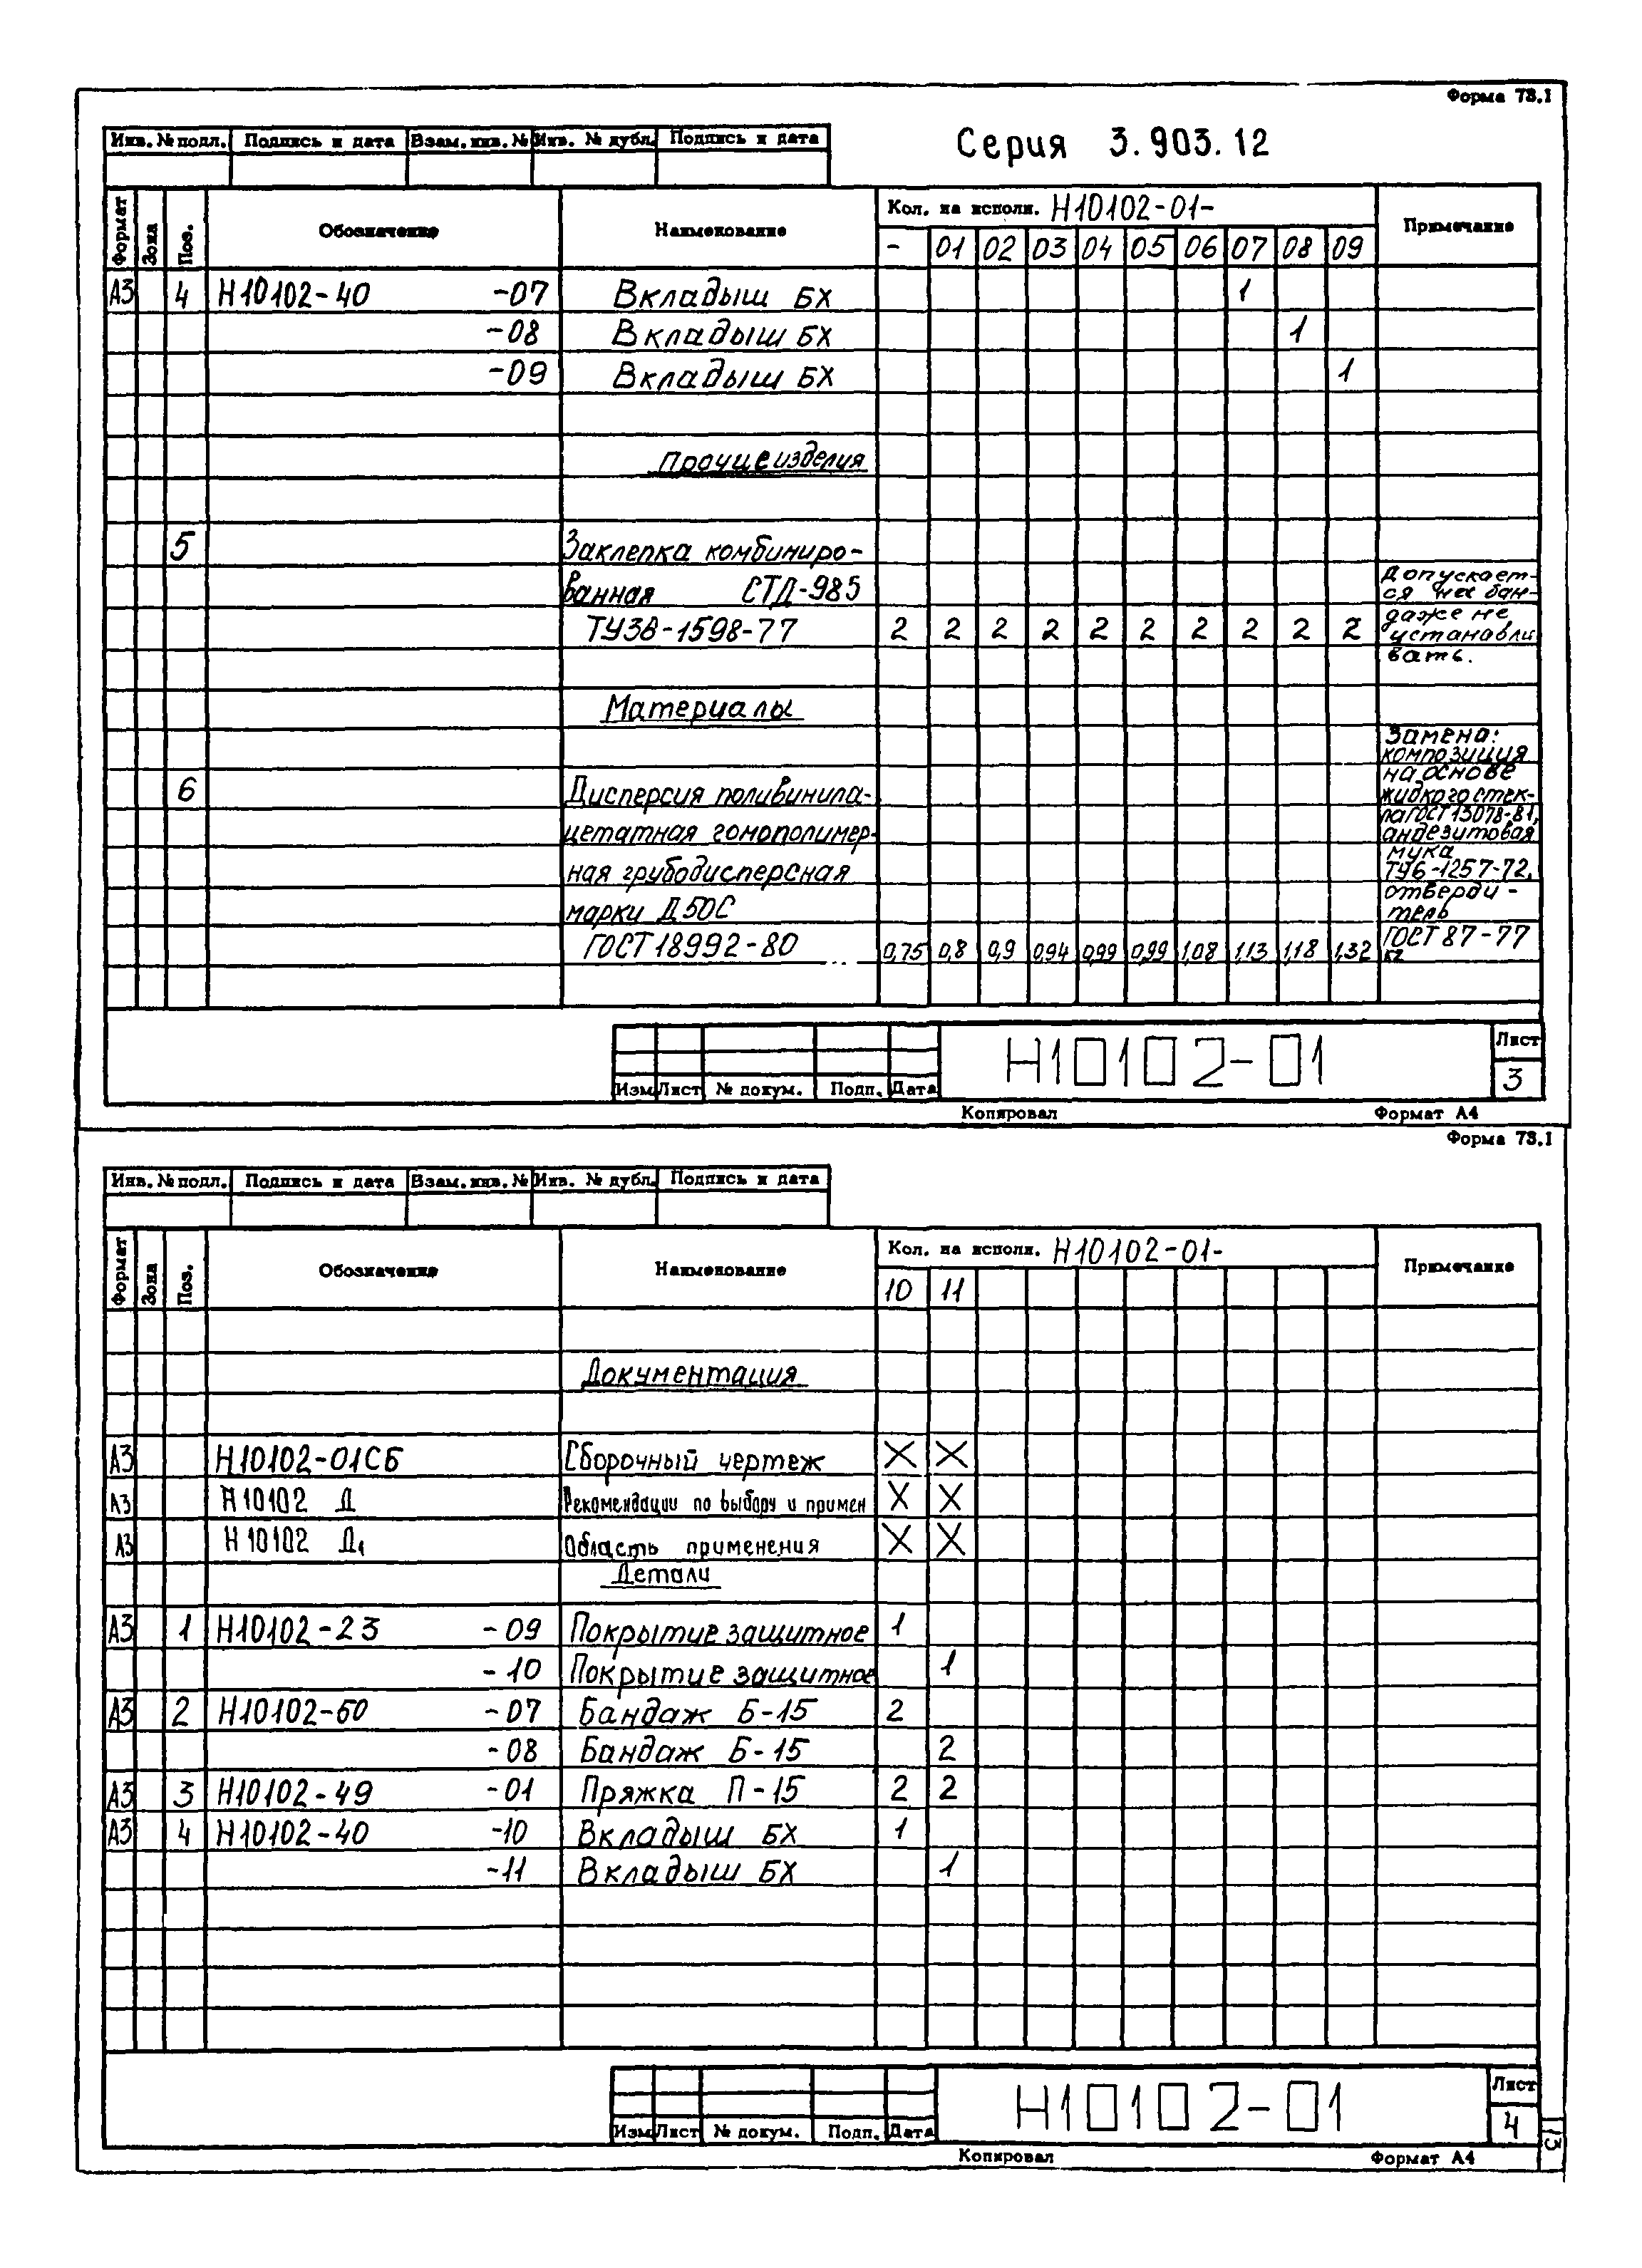 Форма 73.1
Инв. № подл. Подпись и дата Взам. инв. № Инв. № дубл. Подпись и дата
Серия 3.903.12
Формат Зона Поз. Обозначение Наименование Кол. на исполн. Н10102-01- Примечание
- 01 02 03 04 05 06 07 08 09
А3 4 Н10102-40 -07 Вкладыш БХ 1
-08 Вкладыш БХ 1
-09 Вкладыш БХ 1
Прочие изделия
5 Заклепка комбиниро-
ванная СТД-985
ТУ36-1598-77 2 2 2 2 2 2 2 2 2 2
Допускает-
ся на бан-
даже не
устанавли
вать.
Материалы
6 Дисперсия поливинила-
цетатная гомополимер-
ная грубодисперсная
марки Д50С
ГОСТ 18992-80 0,75 0,8 0,9 0,94 0,99 0,99 1,08 1,13 1,18 1,32
Замена:
композиция
на основе
жидкого стек-
ла ГОСТ 13078-81,
андезитовая
мука
ТУ6-1257-72,
отверди-
тель
ГОСТ 87-77
кг
Изм Лист № докум. Подп. Дата
Н10102-01
Лист
3
Копировал Формат А4
Форма 73.1
Инв. № подл. Подпись и дата Взам. инв. № Инв. № дубл. Подпись и дата
Формат Зона Поз. Обозначение Наименование Кол. на исполн. Н10102-01- Примечание
10 11
Документация
А3 Н10102-01СБ Сборочный чертеж X X
А3 Н10102 Д Рекомендации по выбору и примен X X
А3 Н10102 Д1 Область применения X X
Детали
А3 1 Н10102-23 -09 Покрытие защитное 1
-10 Покрытие защитное 1
А3 2 Н10102-50 -07 Бандаж Б-15 2
-08 Бандаж Б-15 2
А3 3 Н10102-49 -01 Пряжка П-15 2 2
А3 4 Н10102-40 -10 Вкладыш БХ 1
-11 Вкладыш БХ 1
Изм Лист № докум. Подп. Дата
Н10102-01
Лист
4
13
Копировал Формат А4